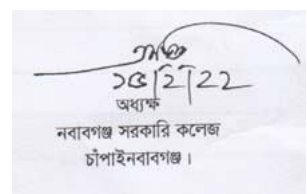 ১৫|২|22
অধ্যক্ষ
নবাবগঞ্জ সরকারি কলেজ
চাঁপাইনবাবগঞ্জ।